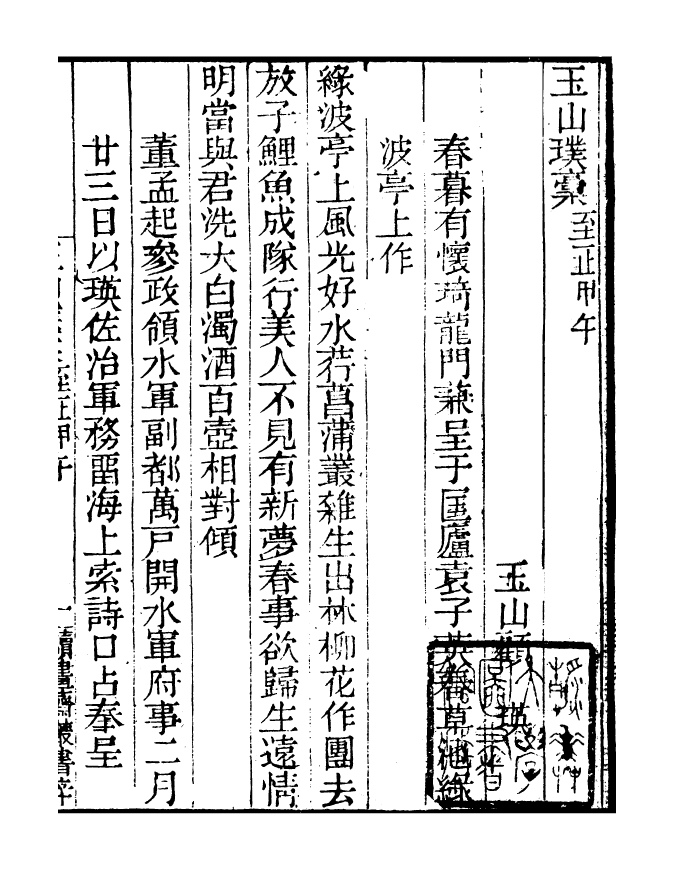 玉山璞稾 至正甲午
玉山顧 瑛
春暮有懷琦龍門兼呈于匡廬袁子英春草池綠
波亭上作
綠波亭上風光好水荇菖蒲叢雜生出林柳花作團去
放子鯉魚成隊行美人不見有新夢春事欲歸生遠情
明當與君洗大白濁酒百壺相對傾
董孟起參政領水軍副都萬戶開水軍府事二月
廿三日以瑛佐治軍務畱海上索詩口占奉呈
至正甲午 一 讀畫齋叢書